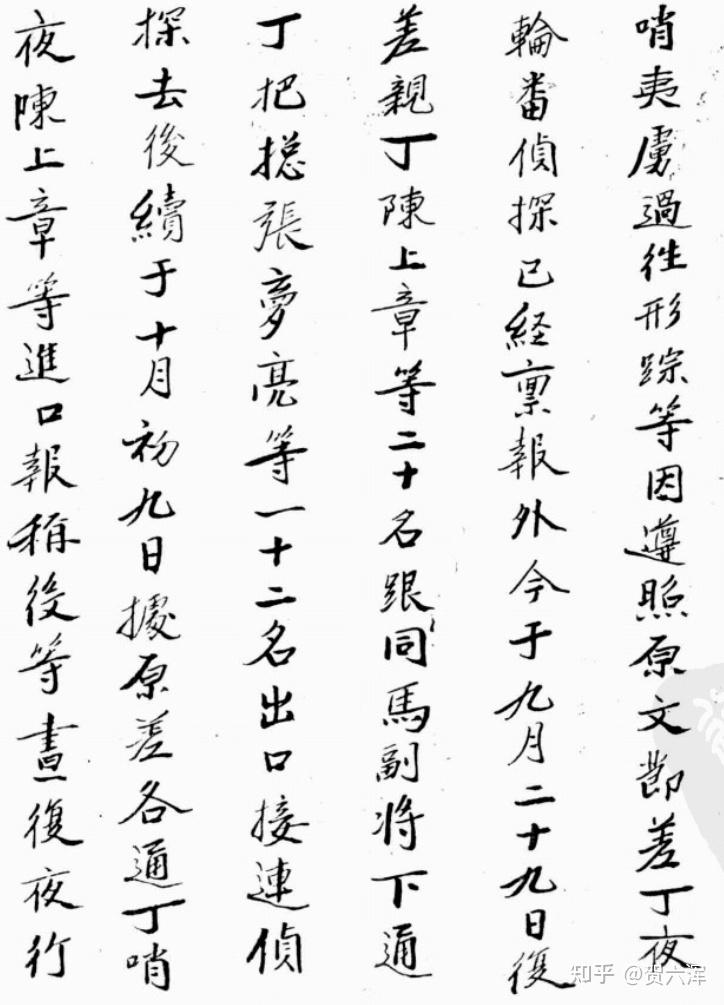 哨夷虜過徃形踪等因遵照原文節差丁夜
輪畨偵探已経禀報外今于九月二十九日復
差親丁陳上章等二十名跟同馬副将下通
丁把捴張夣亮等一十二名出口接連偵
探去後續于十月初九日據原差各通丁哨
夜陳上章等進口報称役等晝復夜行
知乎 @贺六浑